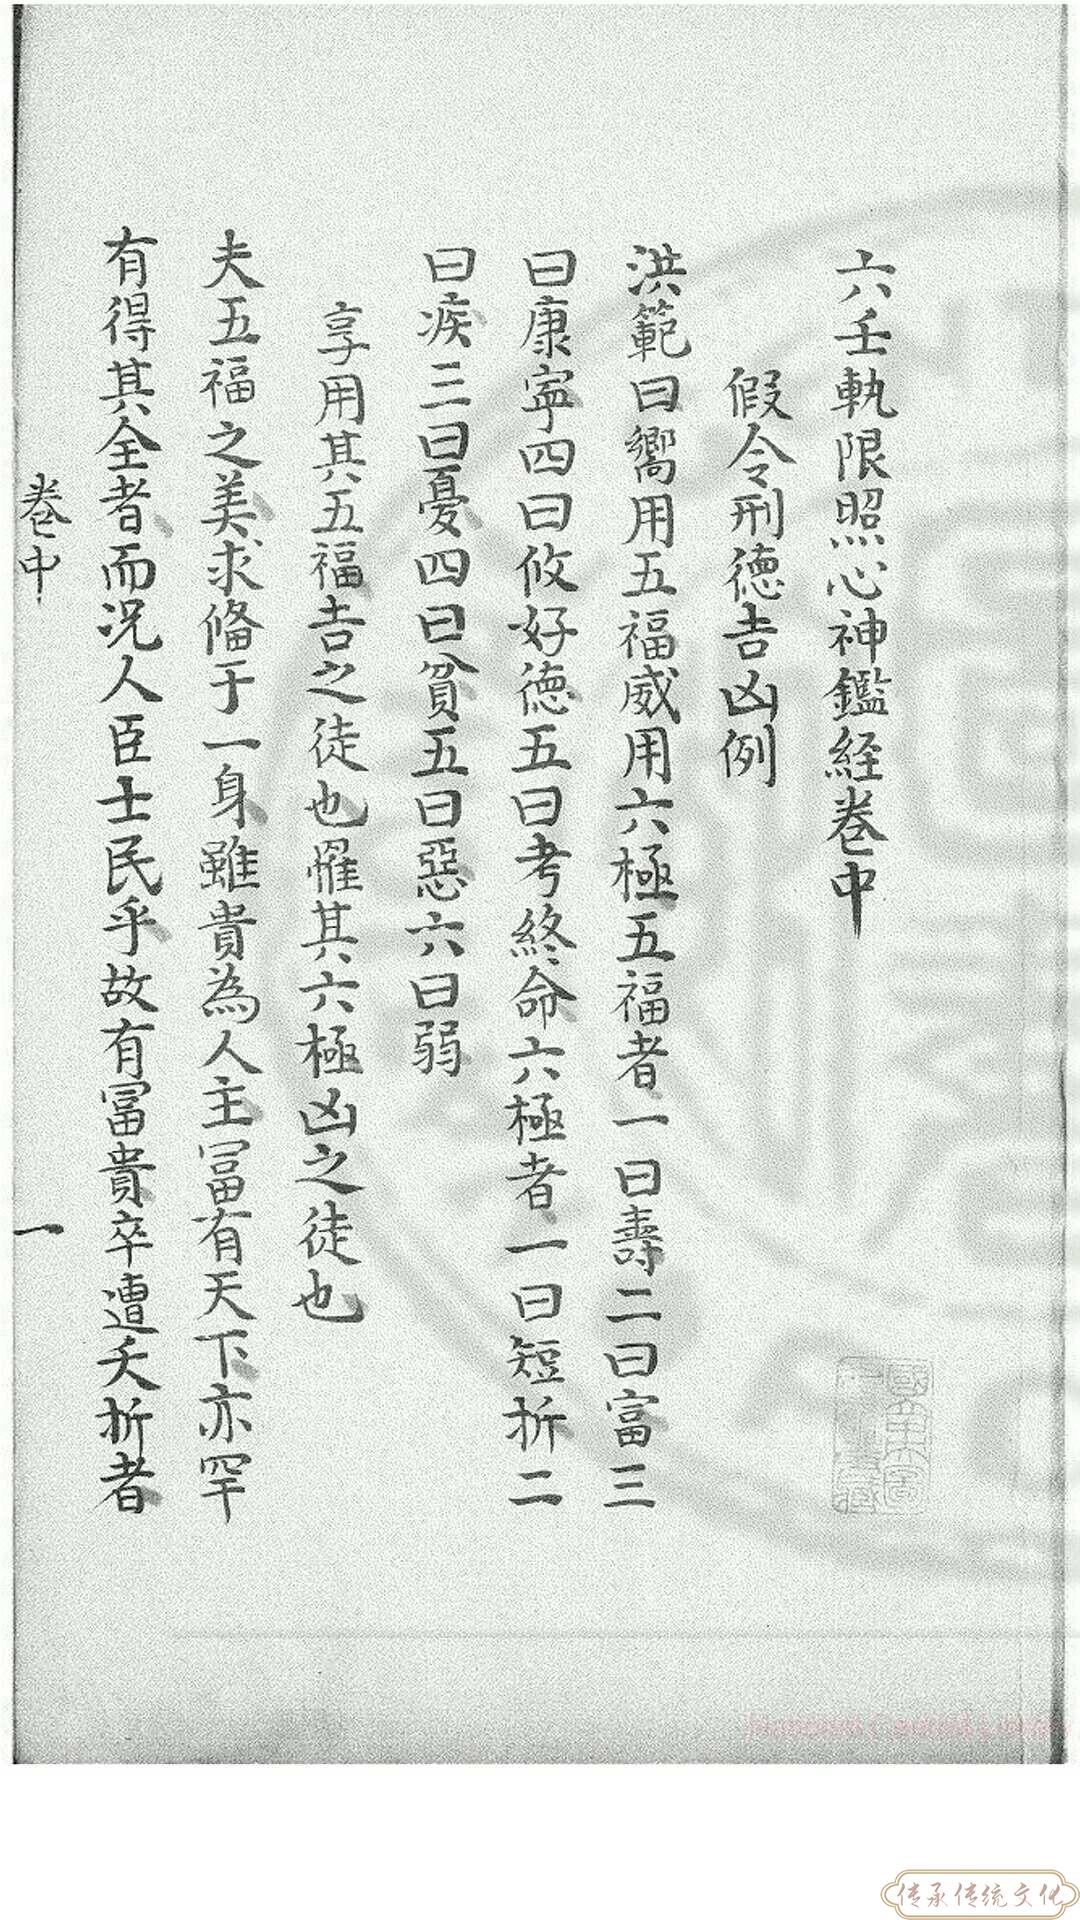 六壬軌限照心神鑑経巻中
假令刑德吉凶例
洪範曰嚮用五福威用六極五福者一曰壽二曰富三
曰康寧四曰攸好德五曰考終命六極者一曰短折二
曰疾三曰憂四曰貧五曰惡六曰弱
享用其五福吉之徒也罹其六極凶之徒也
夫五福之美求俻于一身雖貴為人主冨有天下亦罕
有得其全者而况人臣士民乎故有冨貴卒遭夭折者
卷中
一
传承传统文化